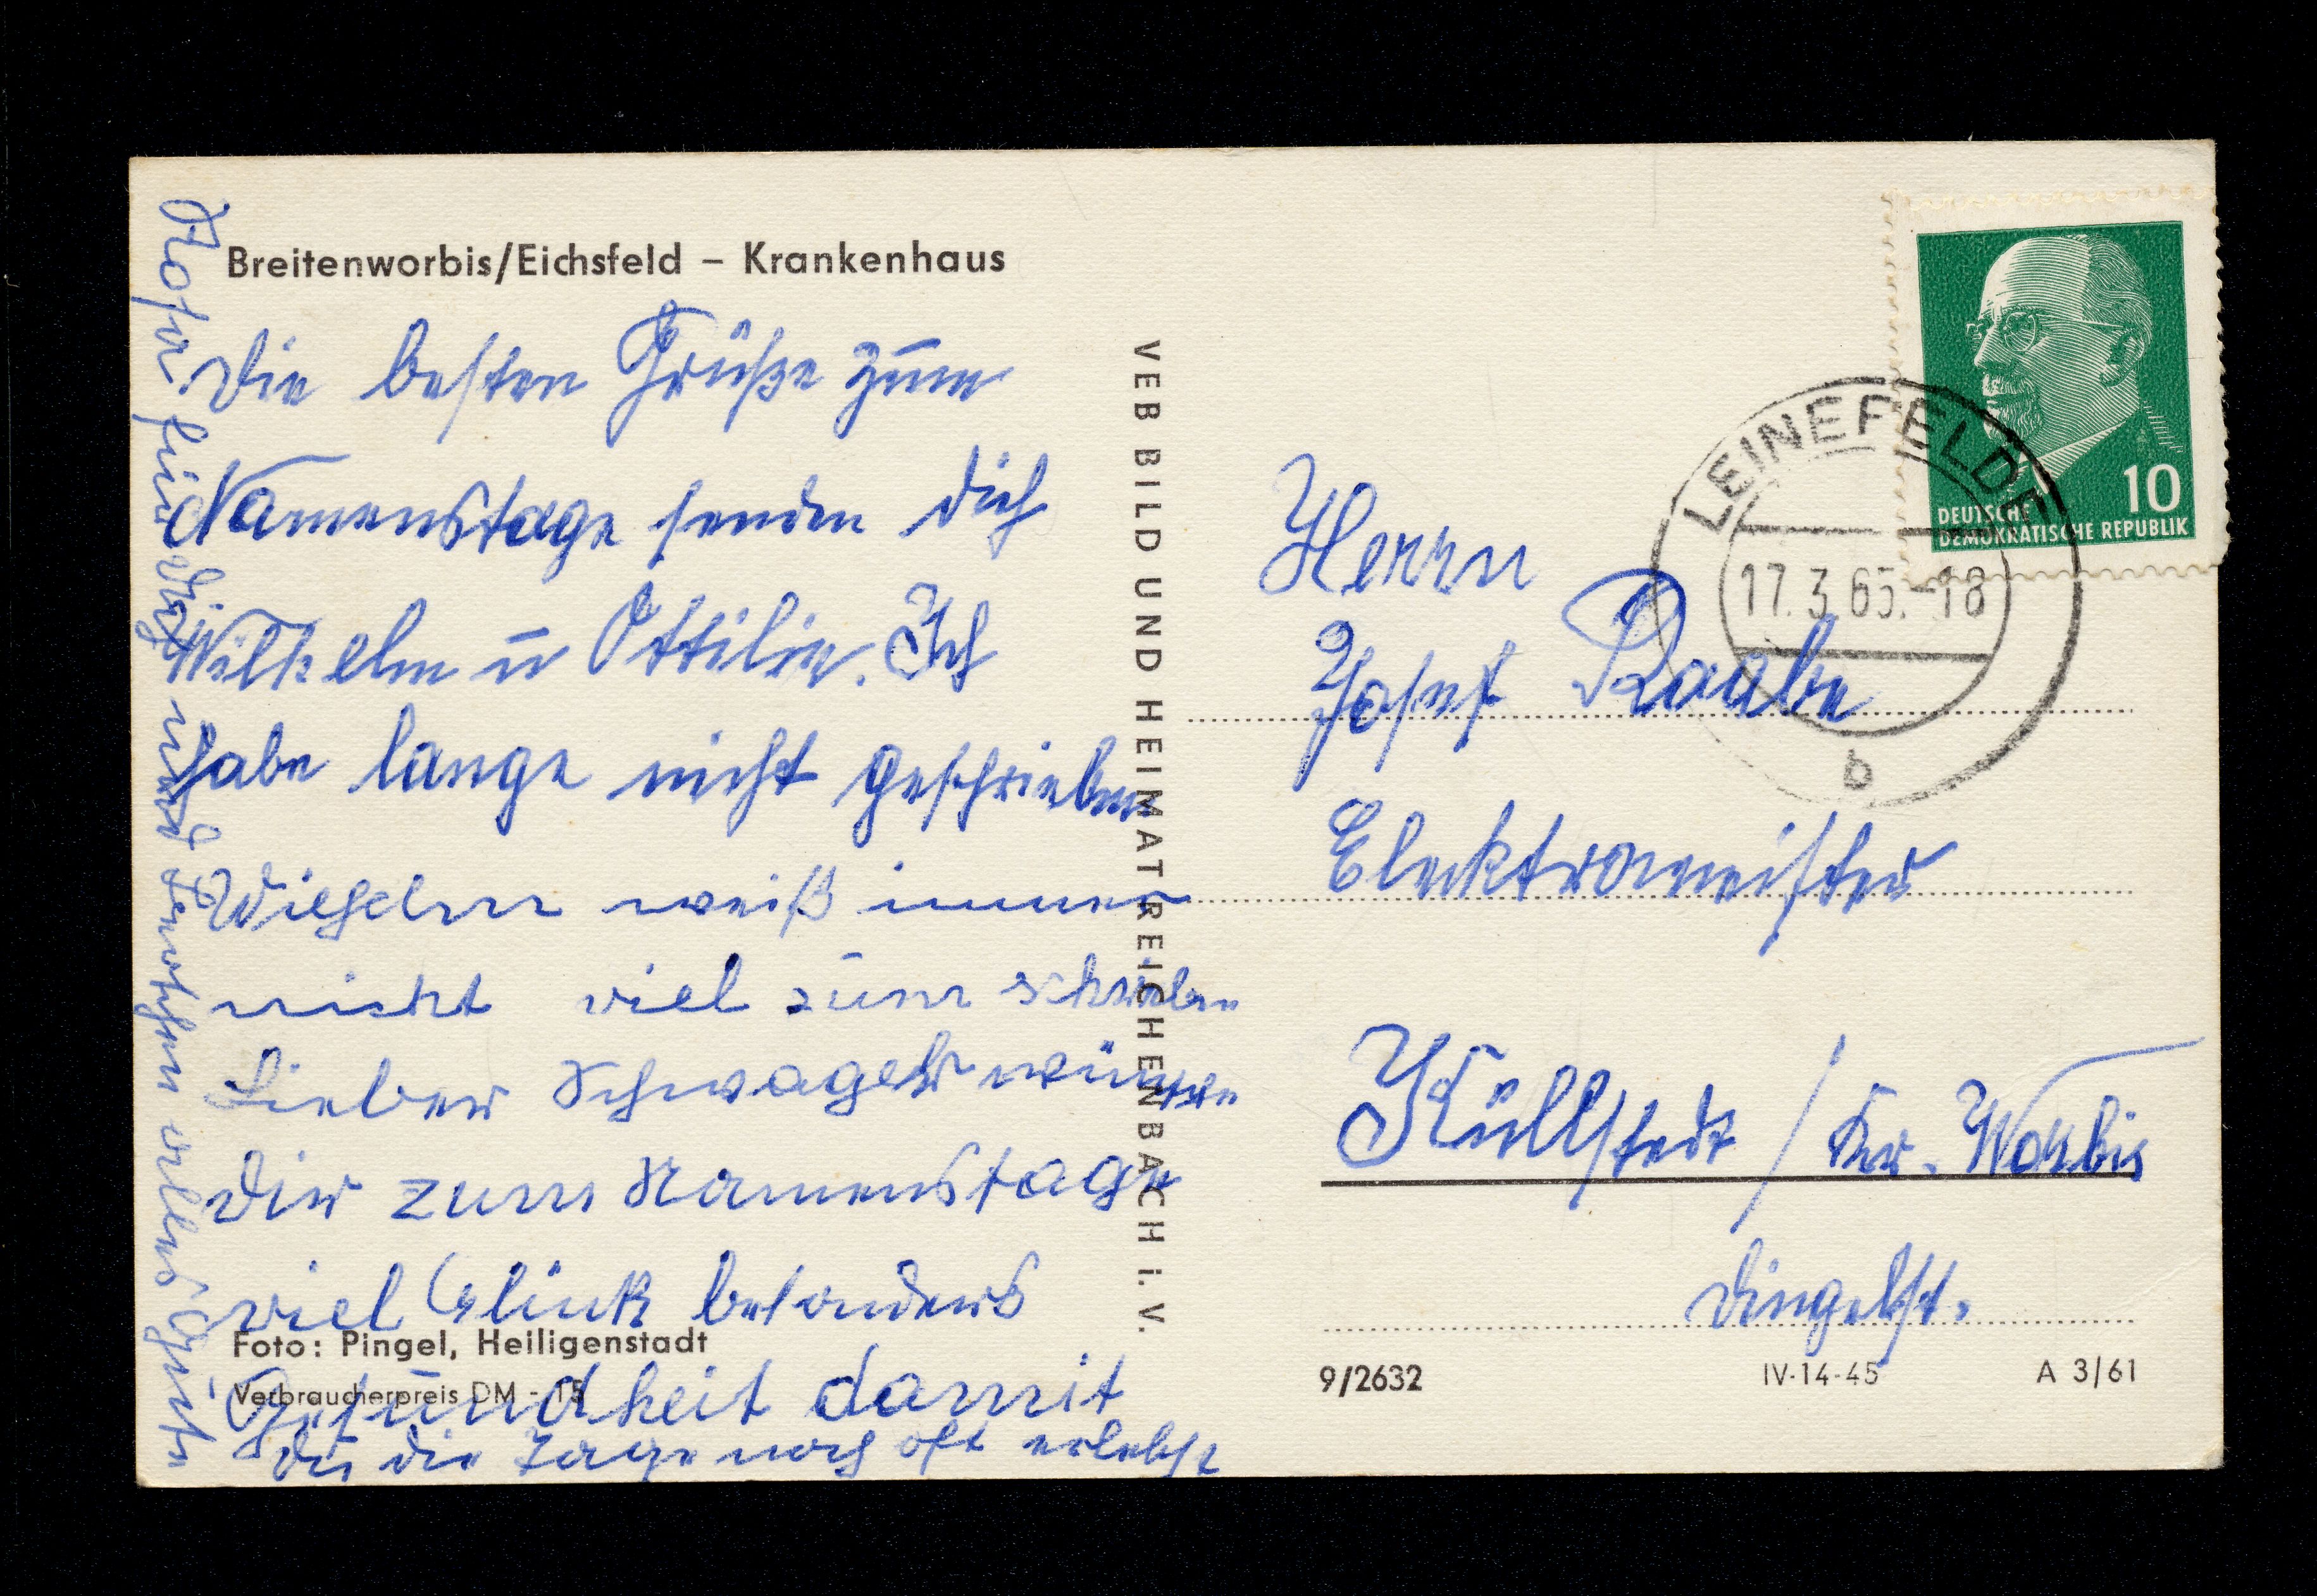 Breitenworbis/Eichsfeld – Krankenhaus
Die besten Grüße zum
Namenstage senden dich
Wilhelm u Ottilie. Ich
habe lange nicht geschrieben
Wilhelm weiß immer
nicht viel zum schreiben
Lieber Schwager wünsche
Dir zum Namenstage
viel Glück besonders
Gesundheit damit
Du die Tage noch oft erlebst
für Dich und alles Gute
Foto: Pingel, Heiligenstadt
Verbraucherpreis DM -,15
VEB BILD UND HEIMAT REICHENBACH i. V.
DEUTSCHE
DEMOKRATISCHE REPUBLIK
10
LEINEFELDE
17.3.65.-18
b
Herrn
Josef Raabe
Elecktromeister
Küllstedt / Kr. Worbis
Dingelst.
9/2632
IV-14-45
A 3/61